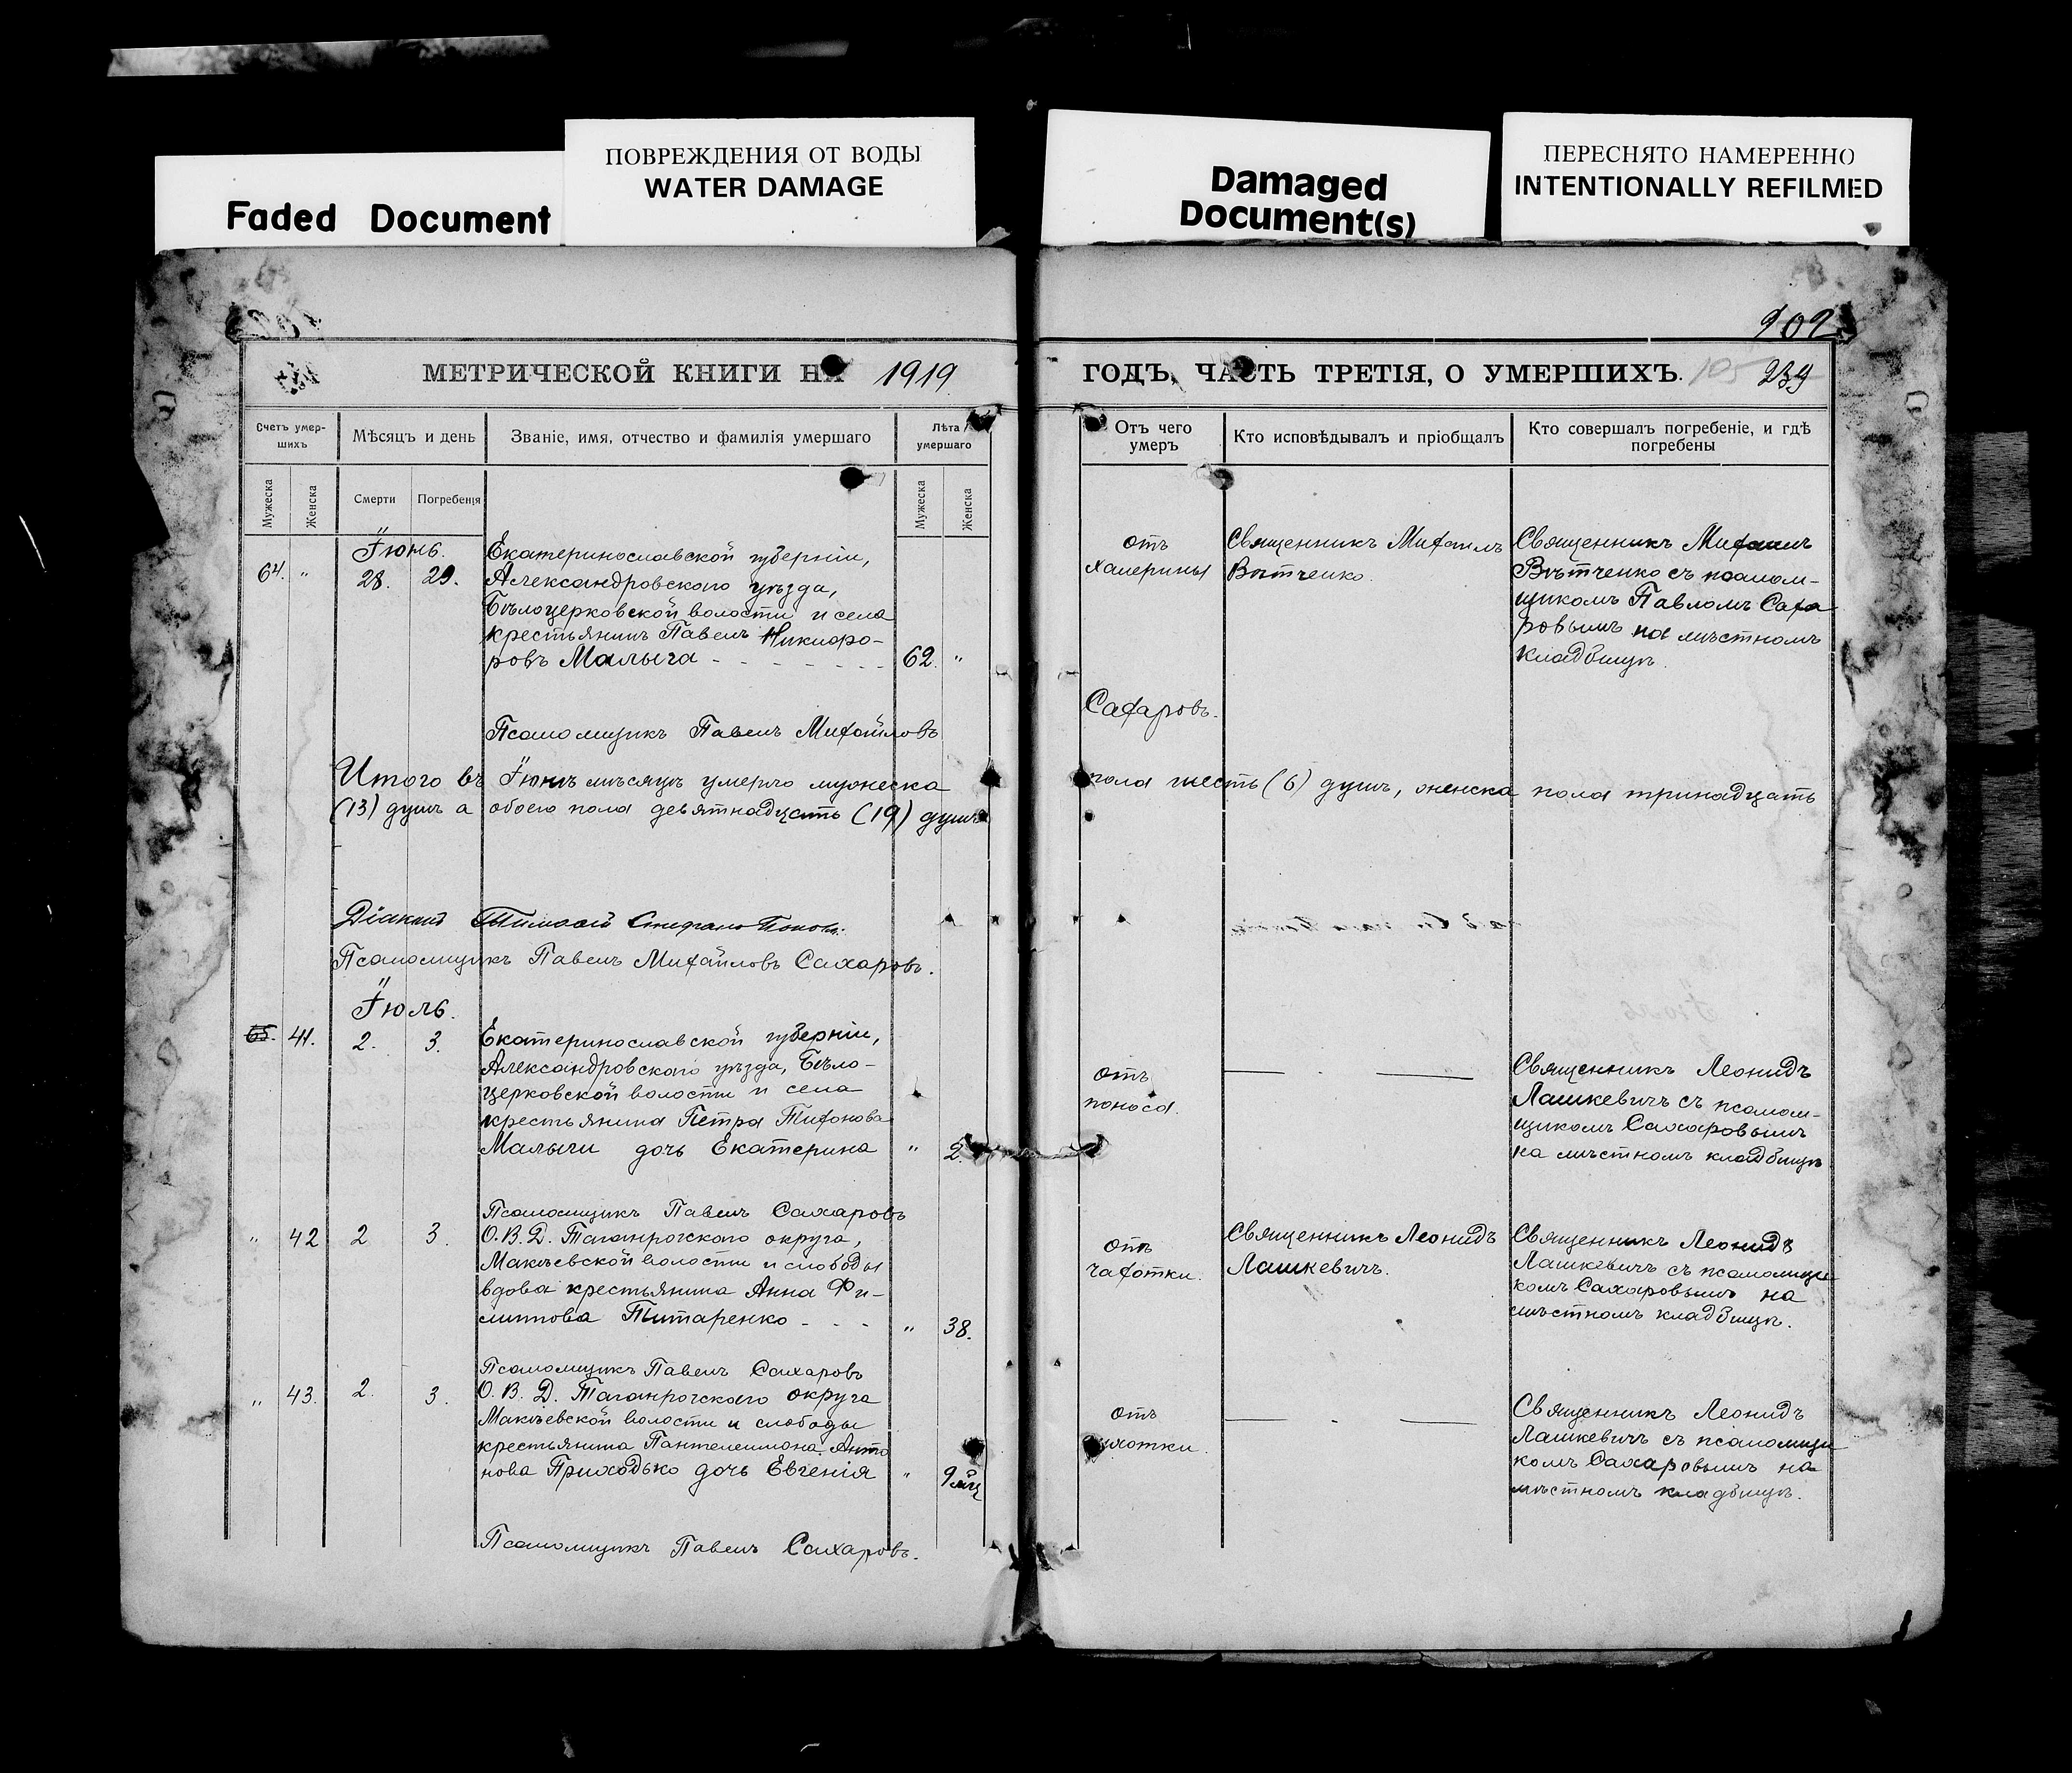 Faded Document
ПОВРЕЖДЕНИЯ ОТ ВОДЫ
WATER DAMAGE
Damaged
Document(s)
ПЕРЕСНЯТО НАМЕРЕННО
INTENTIONALLY REFILMED
МЕТРИЧЕСКОЙ КНИГИ НА 1919
ГОДЪ, ЧАСТЬ ТРЕТІЯ, О УМЕРШИХЪ. 105 239
Счетъ умер-
шихъ
Мѣсяцъ и день
Званіе, имя, отчество и фамилія умершаго
Лѣта
умершаго
Отъ чего
умеръ
Кто исповѣдывалъ и пріобщалъ
Кто совершалъ погребеніе, и гдѣ
погребены
Мужеска
Женска
Смерти
Погребенія
Мужеска
Женска
Іюнь.
64. " 28. 29.
Екатеринославской губерніи,
Александровского уѣзда,
Бѣлоцерковской волости и села
крестьянинъ Павелъ Никифо-
ровъ Малыга - - - - - - - 62. "
отъ
халерины
Священникъ Михаилъ
Вѣтченко.
Священникъ Михаилъ
Вѣтченко съ псалом-
щикомъ Павломъ Саха
ровымъ на мѣстномъ
кладбищѣ.
Псаломщикъ Павелъ Михайловъ
Сахаровъ.
Итого въ Іюнѣ мѣсяцѣ умерло мужеска
пола шесть (6) душъ, женска пола тринадцать
(13) душъ а обоего пола девятнадцать (19) душъ
Діаконъ
Псаломщикъ Павелъ Михайловъ Сахаровъ.
Іюль.
65. 41. 2. 3.
Екатеринославской губерніи,
Александровского уѣзда, Бѣло-
церковской волости и села
крестьянина Петра Тихонова
Малыги дочь Екатерина " 2.
отъ
поноса.
Священникъ Леонидъ
Лашкевичъ съ псалом-
щикомъ Сахаровымъ
на мѣстномъ кладбищѣ
Псаломщикъ Павелъ Сахаровъ
" 42 2 3.
О. В. Д. Таганрогского округа,
Макѣевской волости и слободы
вдова крестьянина Анна Фи-
липпова Титаренко - - - " 38.
отъ
чахотки.
Священникъ Леонидъ
Лашкевичъ.
Священникъ Леонидъ
Лашкевичъ съ псаломщи
комъ Сахаровымъ на
мѣстномъ кладбищѣ.
Псаломщикъ Павелъ Сахаровъ
" 43. 2. 3.
О. В. Д. Таганрогского округа
Макѣевской волости и слободы
крестьянина Пантелеимона Анто
нова Приходько дочь Евгенія " 9 мц
отъ
Священникъ Леонидъ
Лашкевичъ съ псаломщи
комъ Сахаровымъ на
мѣстномъ кладбищѣ.
Псаломщикъ Павелъ Сахаровъ.